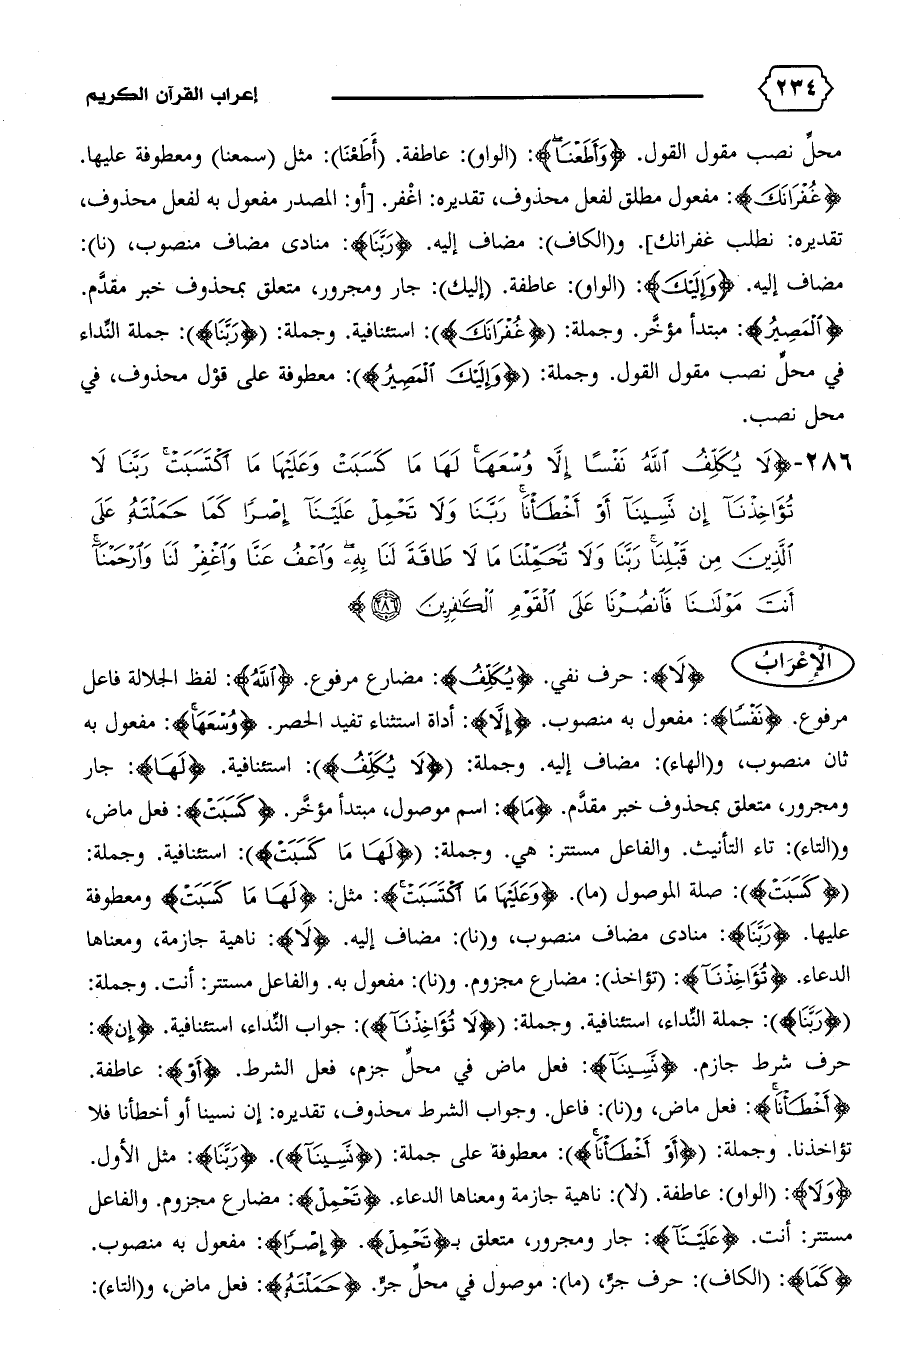 ٢٣٤ إعراب القرآن الكريم
محلِّ نصب مقول القول. ﴿وَأَطَعْنَا﴾: (الواو): عاطفة. (أَطَعْنَا): مثل (سمعنا) ومعطوفة عليها.
﴿غُفْرَانَكَ﴾: مفعول مطلق لفعل محذوف، تقديره: اغْفر. [أو: المصدر مفعول به لفعل محذوف،
تقديره: نطلب غفرانك]. و(الكاف): مضاف إليه. ﴿رَبَّنَا﴾: منادى مضاف منصوب، (نا):
مضاف إليه. ﴿وَإِلَيْكَ﴾: (الواو): عاطفة. (إليك): جار ومجرور، متعلق بمحذوف خبر مقدَّم.
﴿ٱلْمَصِيرُ﴾: مبتدأ مؤخَّر. وجملة: (﴿غُفْرَانَكَ﴾): استئنافية. وجملة: (﴿رَبَّنَا﴾): جملة النِّداء
في محلِّ نصب مقول القول. وجملة: (﴿وَإِلَيْكَ ٱلْمَصِيرُ﴾): معطوفة على قوْل محذوف، في
محل نصب.
٢٨٦-﴿لَا يُكَلِّفُ ٱللَّهُ نَفْسًا إِلَّا وُسْعَهَا ۚ لَهَا مَا كَسَبَتْ وَعَلَيْهَا مَا ٱكْتَسَبَتْ ۗ رَبَّنَا لَا
تُؤَاخِذْنَآ إِن نَّسِينَآ أَوْ أَخْطَأْنَا ۚ رَبَّنَا وَلَا تَحْمِلْ عَلَيْنَآ إِصْرًا كَمَا حَمَلْتَهُۥ عَلَى
ٱلَّذِينَ مِن قَبْلِنَا ۚ رَبَّنَا وَلَا تُحَمِّلْنَا مَا لَا طَاقَةَ لَنَا بِهِۦ ۖ وَٱعْفُ عَنَّا وَٱغْفِرْ لَنَا وَٱرْحَمْنَآ ۚ
أَنتَ مَوْلَىٰنَا فَٱنصُرْنَا عَلَى ٱلْقَوْمِ ٱلْكَٰفِرِينَ ٢٨٦﴾
الْإِعْرَابُ ﴿لَا﴾: حرف نفي. ﴿يُكَلِّفُ﴾: مضارع مرفوع. ﴿ٱللَّهُ﴾: لفظ الجلالة فاعل
مرفوع. ﴿نَفْسًا﴾: مفعول به منصوب. ﴿إِلَّا﴾: أداة استثناء تفيد الحصر. ﴿وُسْعَهَا﴾: مفعول به
ثان منصوب، و(الهاء): مضاف إليه. وجملة: (﴿لَا يُكَلِّفُ﴾): استئنافية. ﴿لَهَا﴾: جار
ومجرور، متعلق بمحذوف خبر مقدَّم. ﴿مَا﴾: اسم موصول، مبتدأ مؤخَّر. ﴿كَسَبَتْ﴾: فعل ماض،
و(التاء): تاء التأنيث. والفاعل مستتر: هي. وجملة: (﴿لَهَا مَا كَسَبَتْ﴾): استئنافية. وجملة:
(﴿كَسَبَتْ﴾): صلة الموصول (ما). ﴿وَعَلَيْهَا مَا ٱكْتَسَبَتْ﴾: مثل: ﴿لَهَا مَا كَسَبَتْ﴾ ومعطوفة
عليها. ﴿رَبَّنَا﴾: منادى مضاف منصوب، و(نا): مضاف إليه. ﴿لَا﴾: ناهية جازمة، ومعناها
الدعاء. ﴿تُؤَاخِذْنَآ﴾: (تؤاخذ): مضارع مجزوم. و(نا): مفعول به. والفاعل مستتر: أنت. وجملة:
(﴿رَبَّنَا﴾): جملة النِّداء، استئنافية. وجملة: (﴿لَا تُؤَاخِذْنَآ﴾): جواب النِّداء، استئنافية. ﴿إِن﴾:
حرف شرط جازم. ﴿نَّسِينَآ﴾: فعل ماض في محلِّ جزم، فعل الشرط. ﴿أَوْ﴾: عاطفة.
﴿أَخْطَأْنَا﴾: فعل ماض، و(نا): فاعل. وجواب الشرط محذوف، تقديره: إن نسينا أو أخطأنا فلا
تؤاخذنا. وجملة: (﴿أَوْ أَخْطَأْنَا﴾): معطوفة على جملة: (﴿نَّسِينَآ﴾). ﴿رَبَّنَا﴾: مثل الأول.
﴿وَلَا﴾: (الواو): عاطفة. (لا): ناهية جازمة ومعناها الدعاء. ﴿تَحْمِلْ﴾: مضارع مجزوم. والفاعل
مستتر: أنت. ﴿عَلَيْنَآ﴾: جار ومجرور، متعلق بـ﴿تَحْمِلْ﴾. ﴿إِصْرًا﴾: مفعول به منصوب.
﴿كَمَا﴾: (الكاف): حرف جرٍّ، (ما): موصول في محلِّ جرٍّ. ﴿حَمَلْتَهُ﴾: فعل ماض، و(التاء):